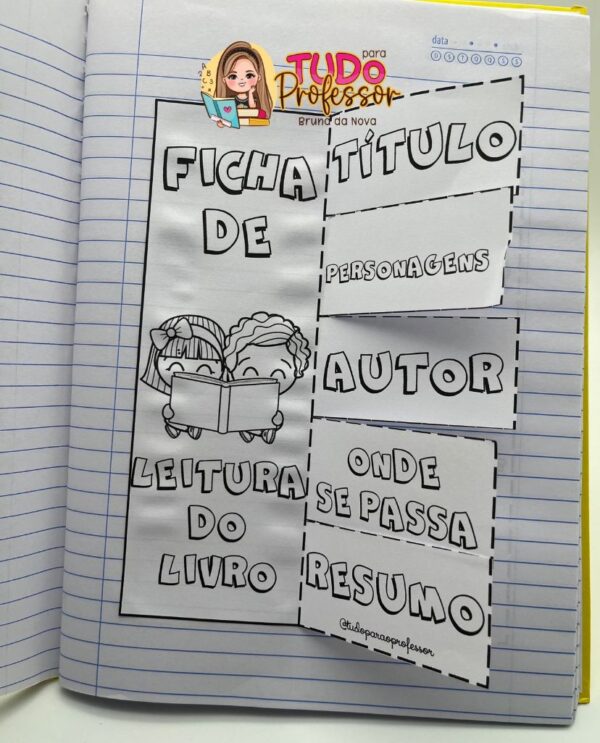 data
para
TUDO
Professor
Bruna da Nova
FICHA
DE
LEITURA
DO
LIVRO
TÍTULO
PERSONAGENS
AUTOR
ONDE
SE PASSA
RESUMO
@tudoparaoprofessor